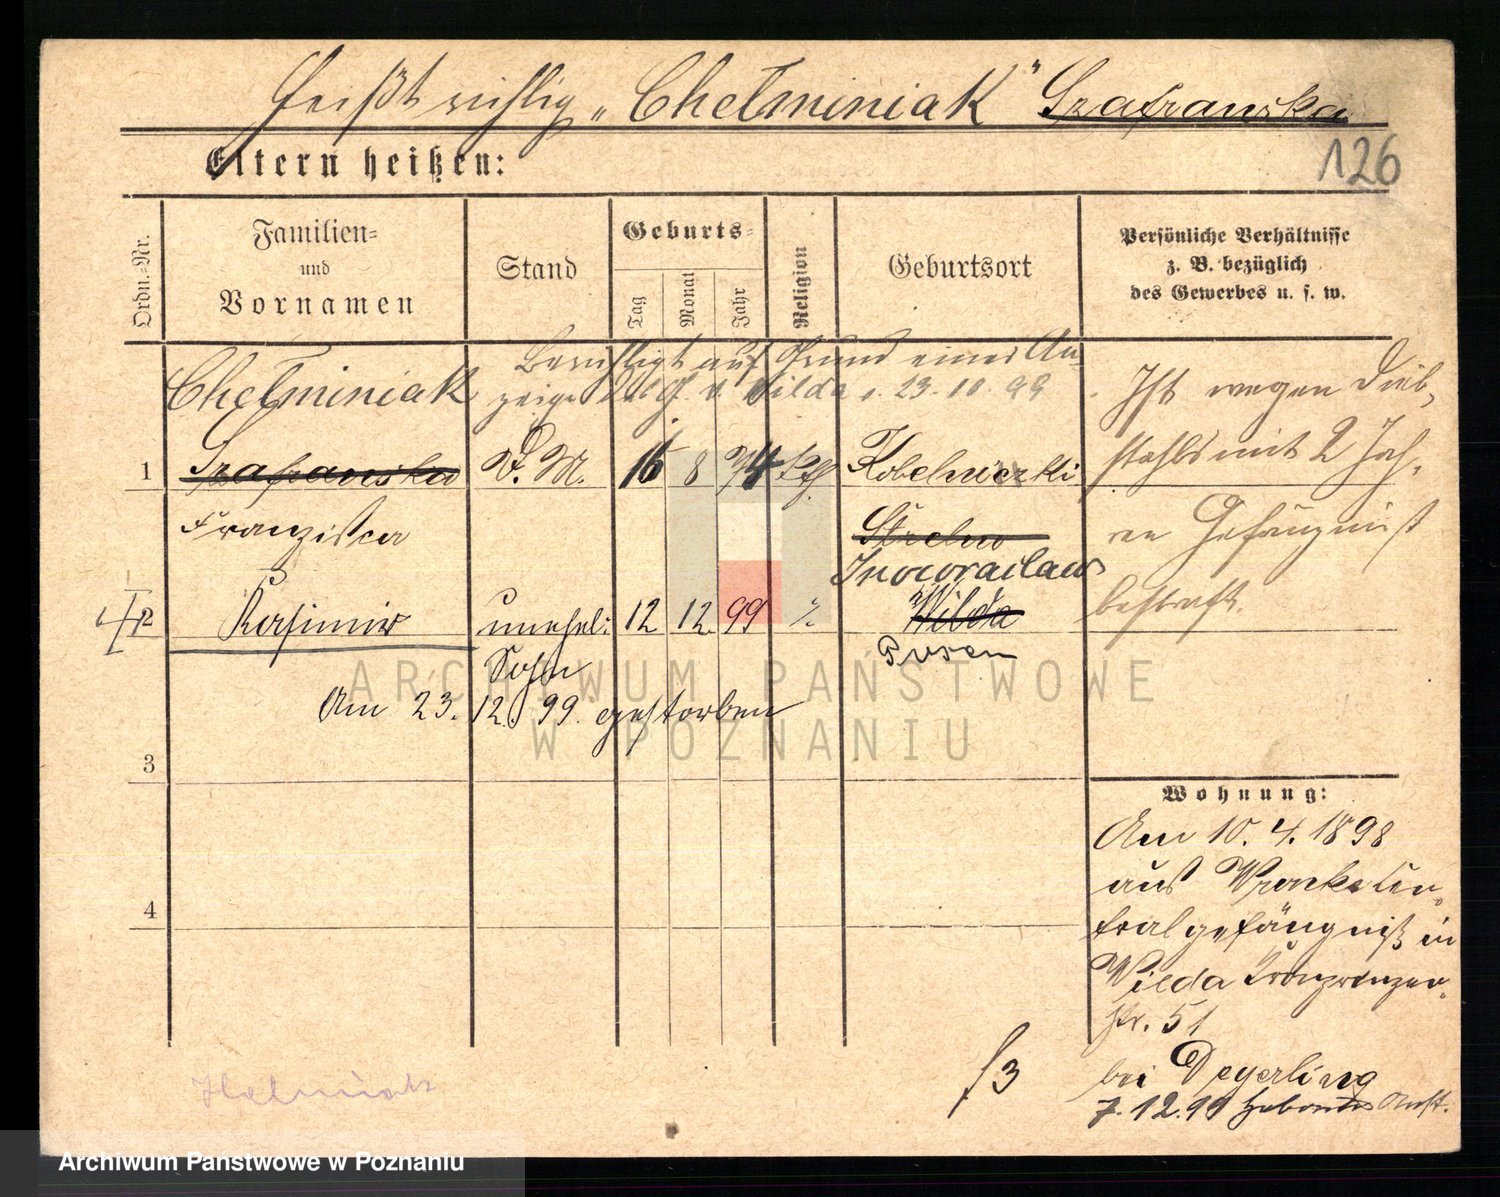 heißt richtig „Chełminiak" Szafranska
126
Eltern heißen:
Ordn.-Nr.
Familien-
und
Vornamen
Stand
Geburts-
Tag
Monat
Jahr
Religion
Geburtsort
Persönliche Verhältnisse
z. B. bezüglich
des Gewerbes u. s. w.
Berichtigt auf Grund einer An-
Chełminiak zeige v. Wilda v. 23.10.99
1 Szafranska D.M. 16 8 74 kth. Kobelniczki
Franziska
Strelno
Inowraclaw
Ist wegen Dieb-
stahls mit 2 Jah-
ren Gefängnißt
bestraft.
2 Kasimir unehel: 12 12. 99 ". Wilda
Sohn
Posen
Am 23. 12. 99. gestorben
ARCHIWUM PAŃSTWOWE
W POZNANIU
3
4
Wohnung:
Am 10. 4. 1898
aus Wronke Cen-
tralgefängniß in
Wilda Kronprinzen-
str. 51
bei Deyerling
7.12.99 Anst.
f3
Archiwum Państwowe w Poznaniu